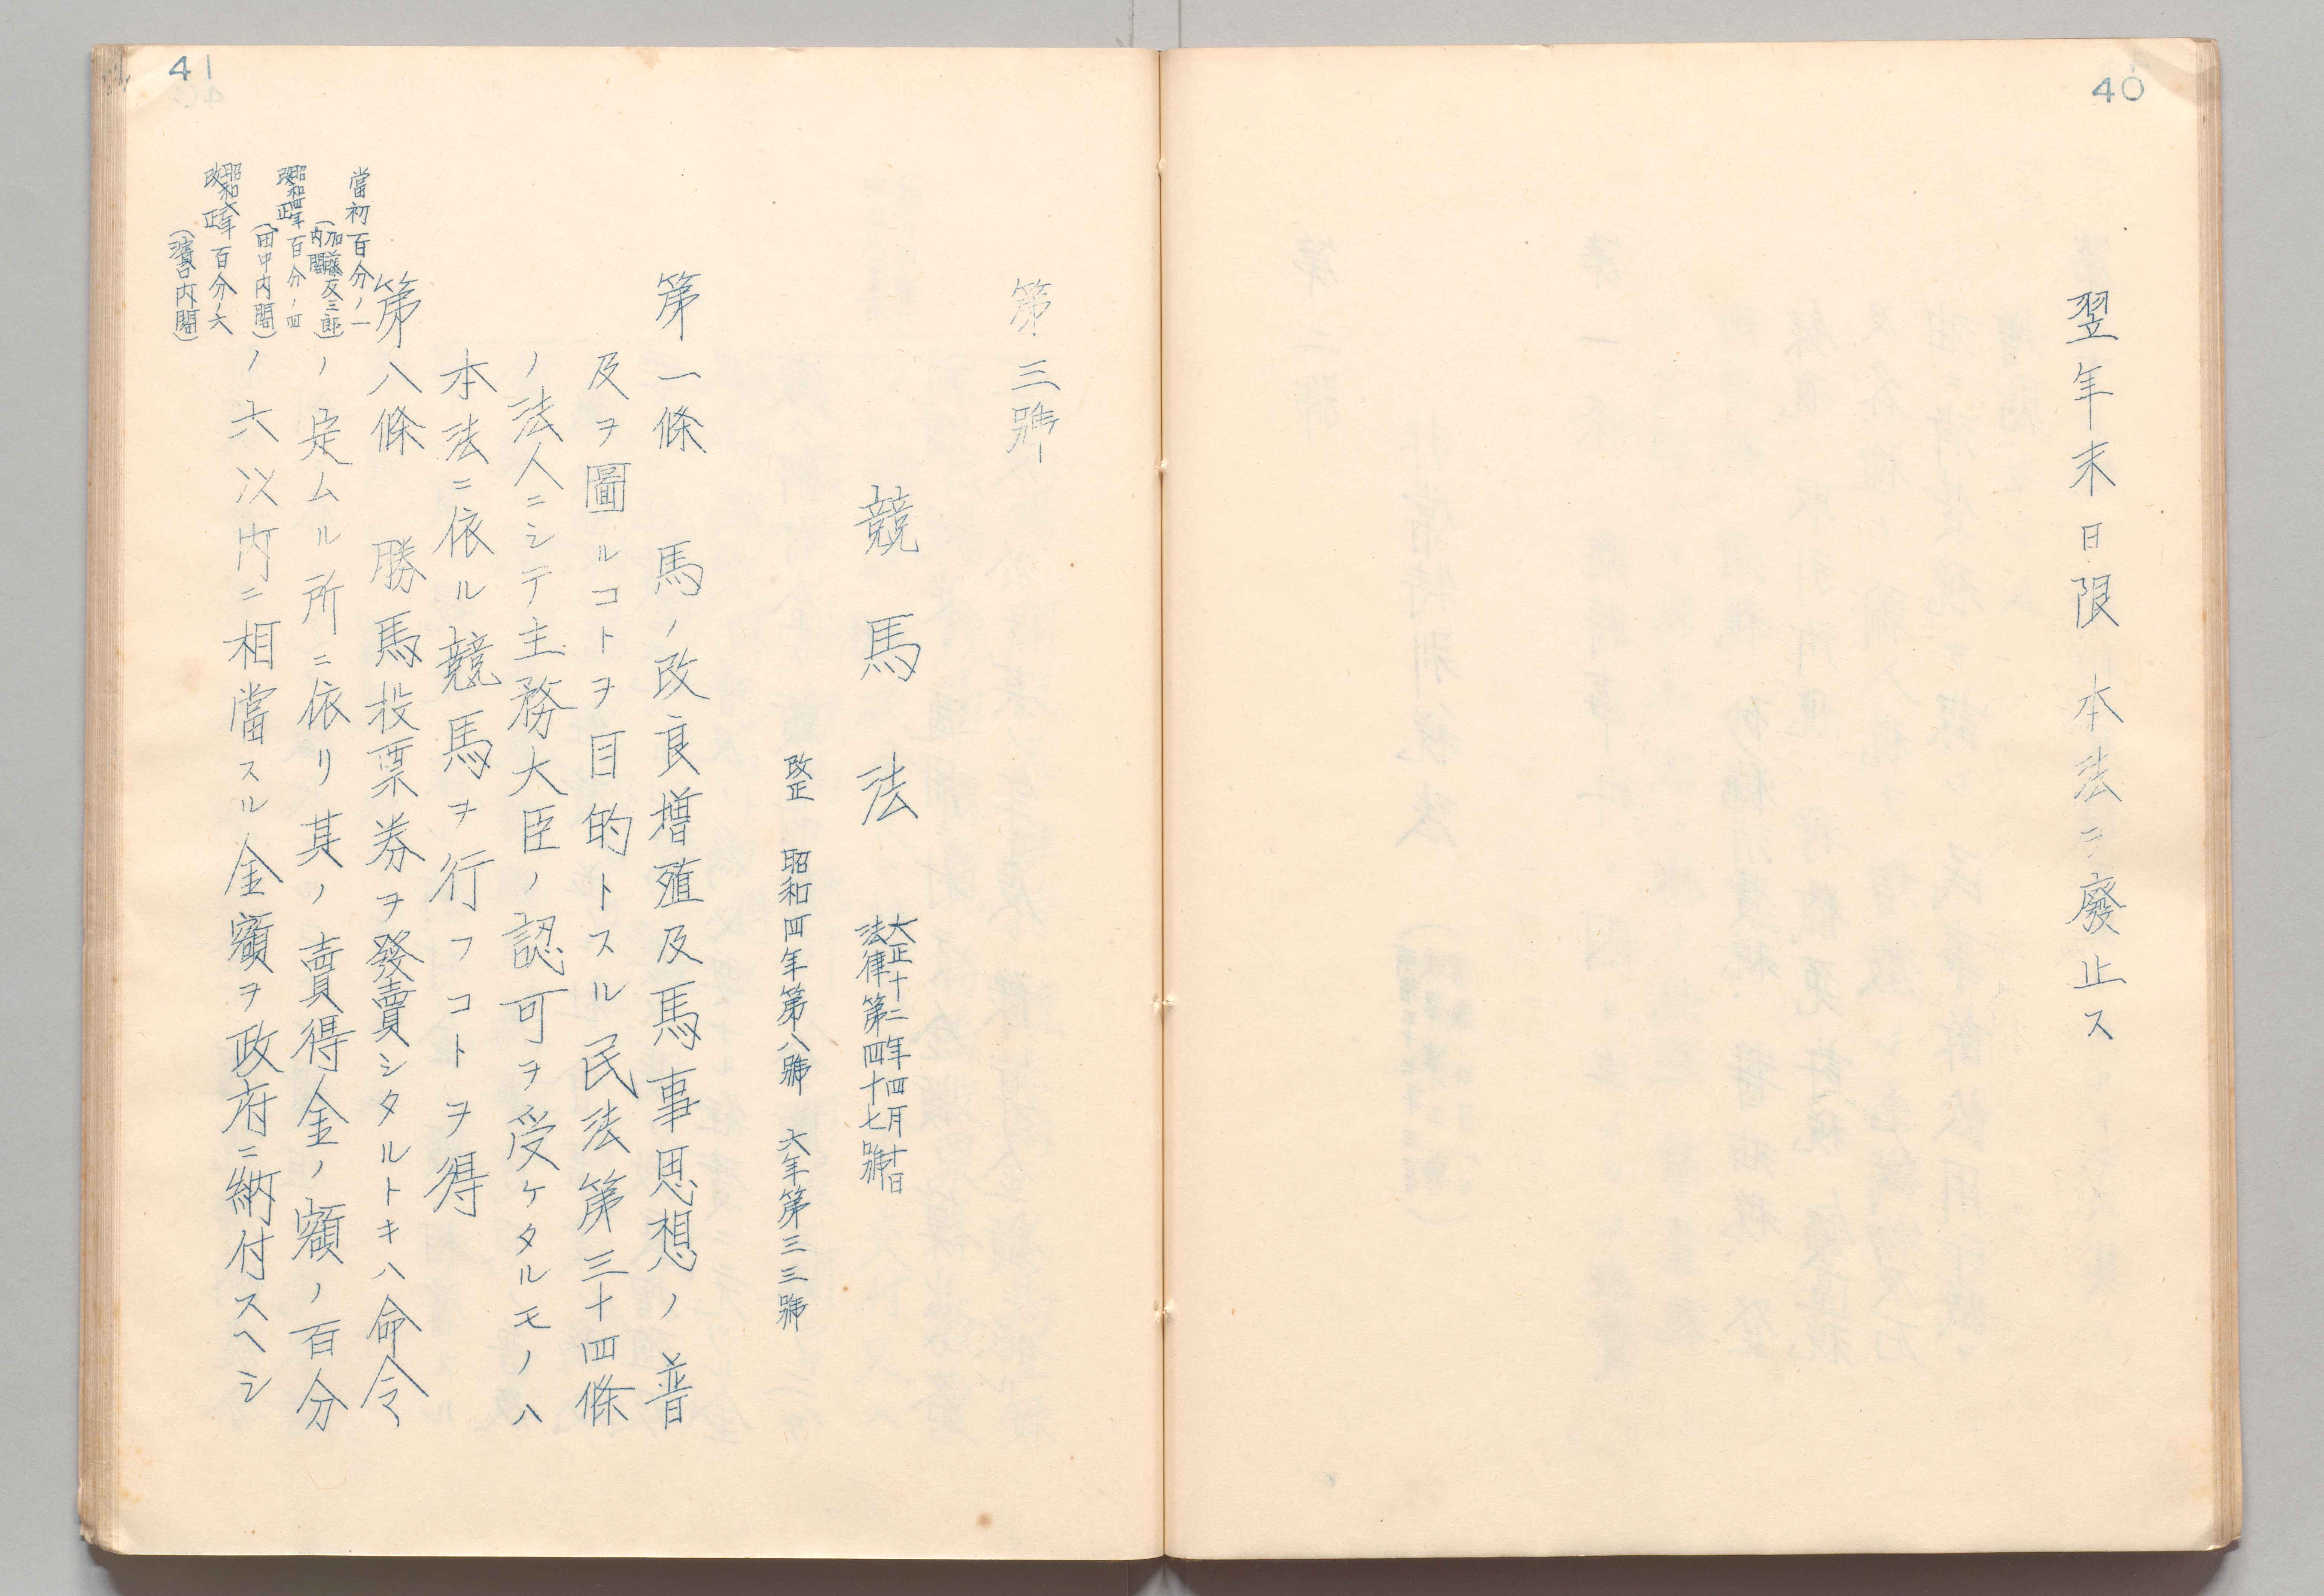 40
翌年末日限本法ニ廢止ス
41
第三號
競馬法
大正十二年四月十日
法律第四十七號
改正 昭和四年第八號 六年第三三號
第一條 馬ノ改良增殖及馬事思想ノ普
及ヲ圖ルコトヲ目的トスル民法第三十四條
ノ法人ニシテ主務大臣ノ認可ヲ受ケタルモノハ
本法ニ依ル競馬ヲ行フコトヲ得
第八條 勝馬投票券ヲ發賣シタルトキハ命令
ノ定ムル所ニ依リ其ノ賣得金ノ額ノ百分
ノ六以内ニ相當スル金額ヲ政府ニ納付スヘシ
當初百分ノ一
(加藤友三郎
内閣)
昭和四年
改正
百分ノ四
(田中内閣)
昭和六年
改正
百分ノ六
(濱口内閣)